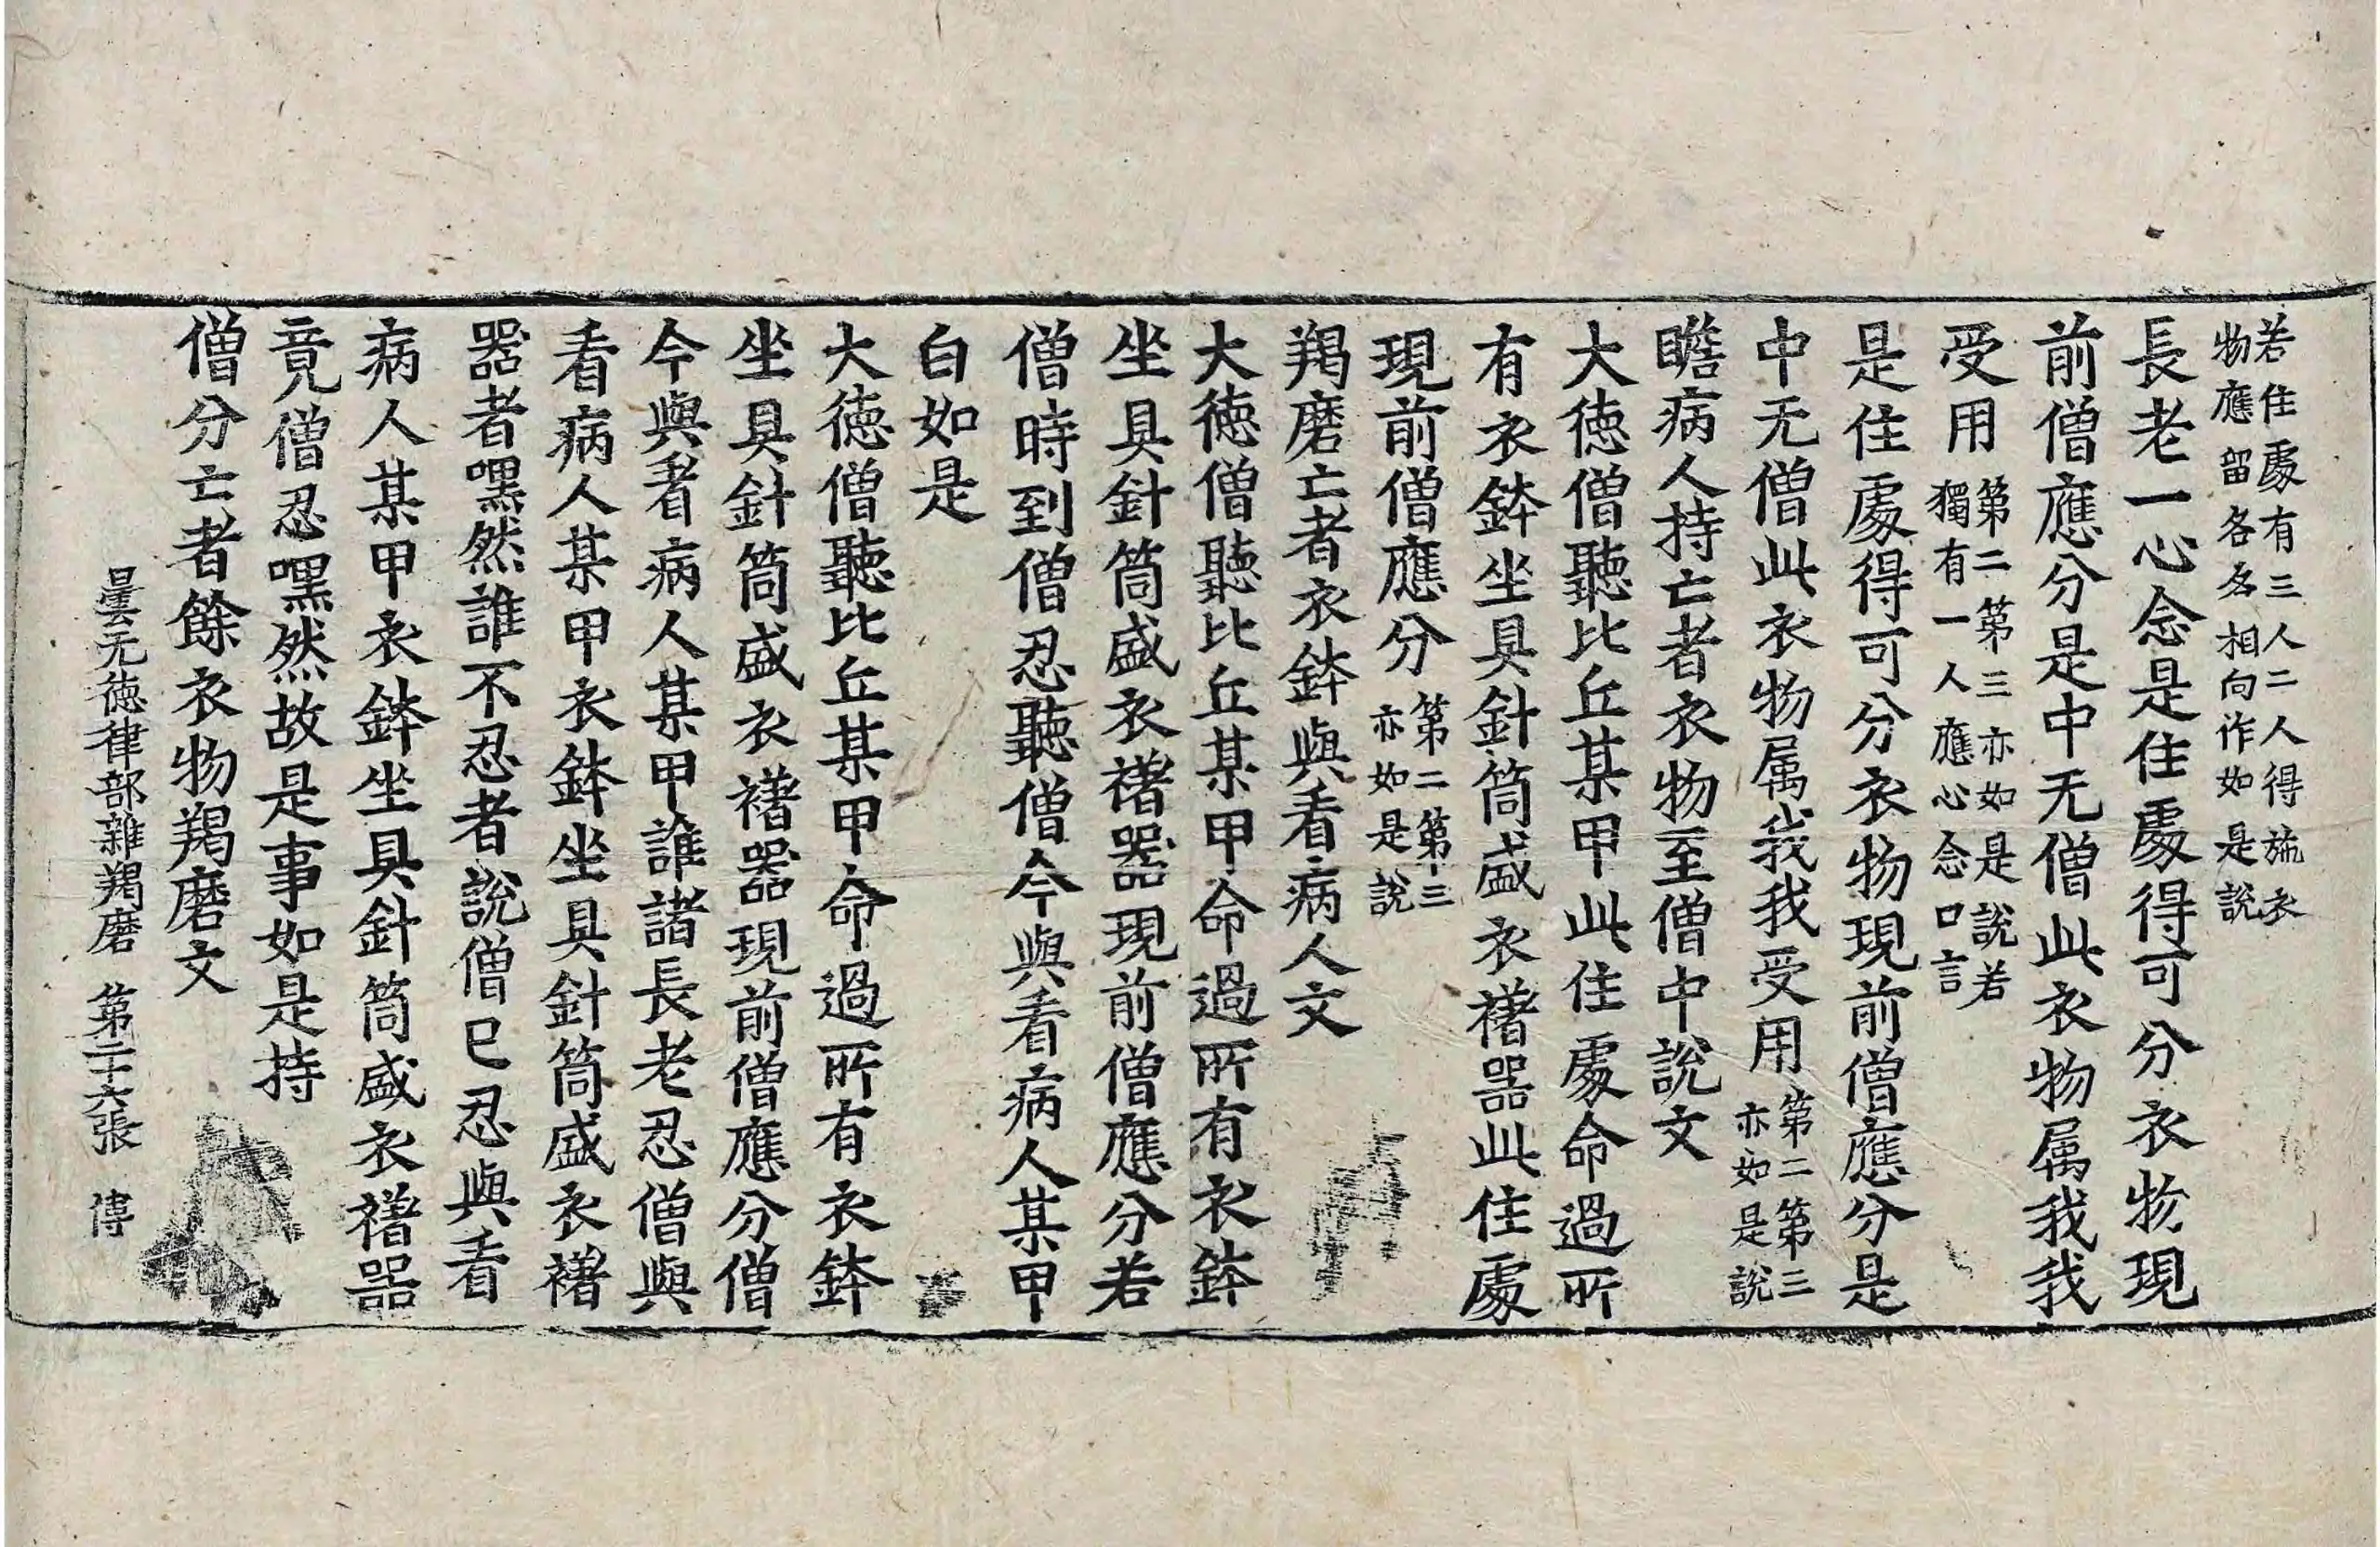 若住處有三人二人得施衣
物應留各各相向作如是說
長老一心念是住處得可分衣物現
前僧應分是中无僧此衣物属我我
受用第二第三亦如是說若
獨有一人應心念口言
是住處得可分衣物現前僧應分是
中无僧此衣物属我我受用第二第三
亦如是說
瞻病人持亡者衣物至僧中說文
大德僧聽比丘某甲此住處命過所
有衣鉢坐具針筒盛衣𧝓器此住處
現前僧應分第二第三
亦如是說
羯磨亡者衣鉢與看病人文
大德僧聽比丘某甲命過所有衣鉢
坐具針筒盛衣𧝓器現前僧應分若
僧時到僧忍聽僧今與看病人某甲
白如是
大德僧聽比丘某甲命過所有衣鉢
坐具針筒盛衣𧝓器現前僧應分僧
今與看病人某甲誰諸長老忍僧與
看病人某甲衣鉢坐具針筒盛衣𧝓
器者嘿然誰不忍者說僧已忍與看
病人某甲衣鉢坐具針筒盛衣𧝓器
竟僧忍嘿然故是事如是持
僧分亡者餘衣物羯磨文
曇无德律部雜羯磨 第二十六張 傅